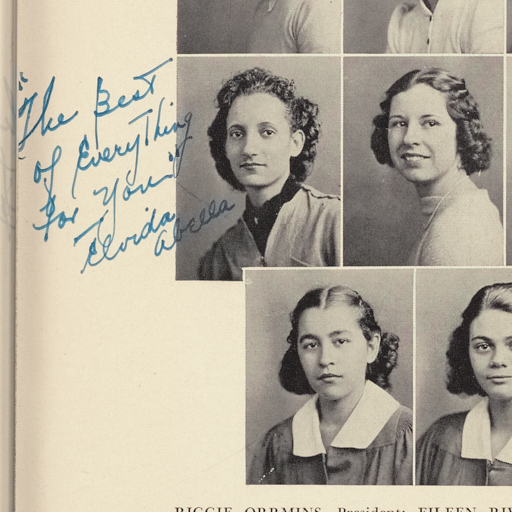 "The Best
of Everything
For You"
Elvida
Abella
BIGGIE ORRMINS, President; EILEEN RIV